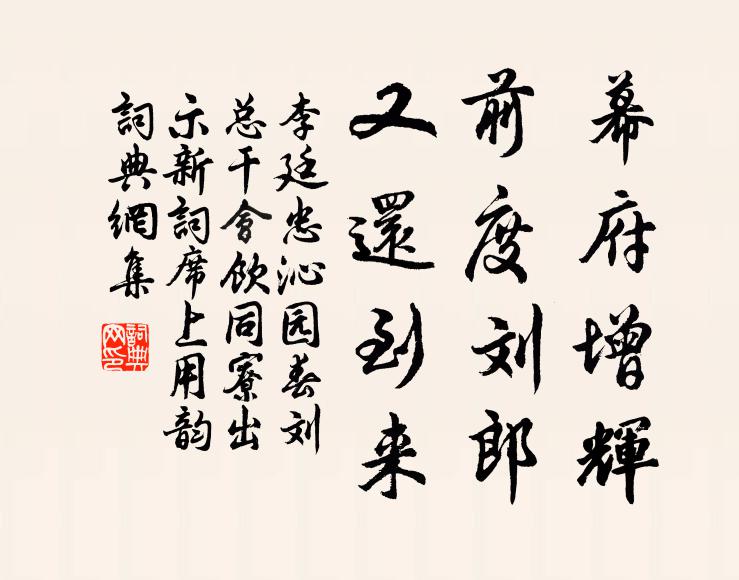 幕府增輝
前度刘郎
又還到来
李廷忠沁园春刘
总干會飲同寮出
示新詞席上用韵
詞典網集
詞典网印